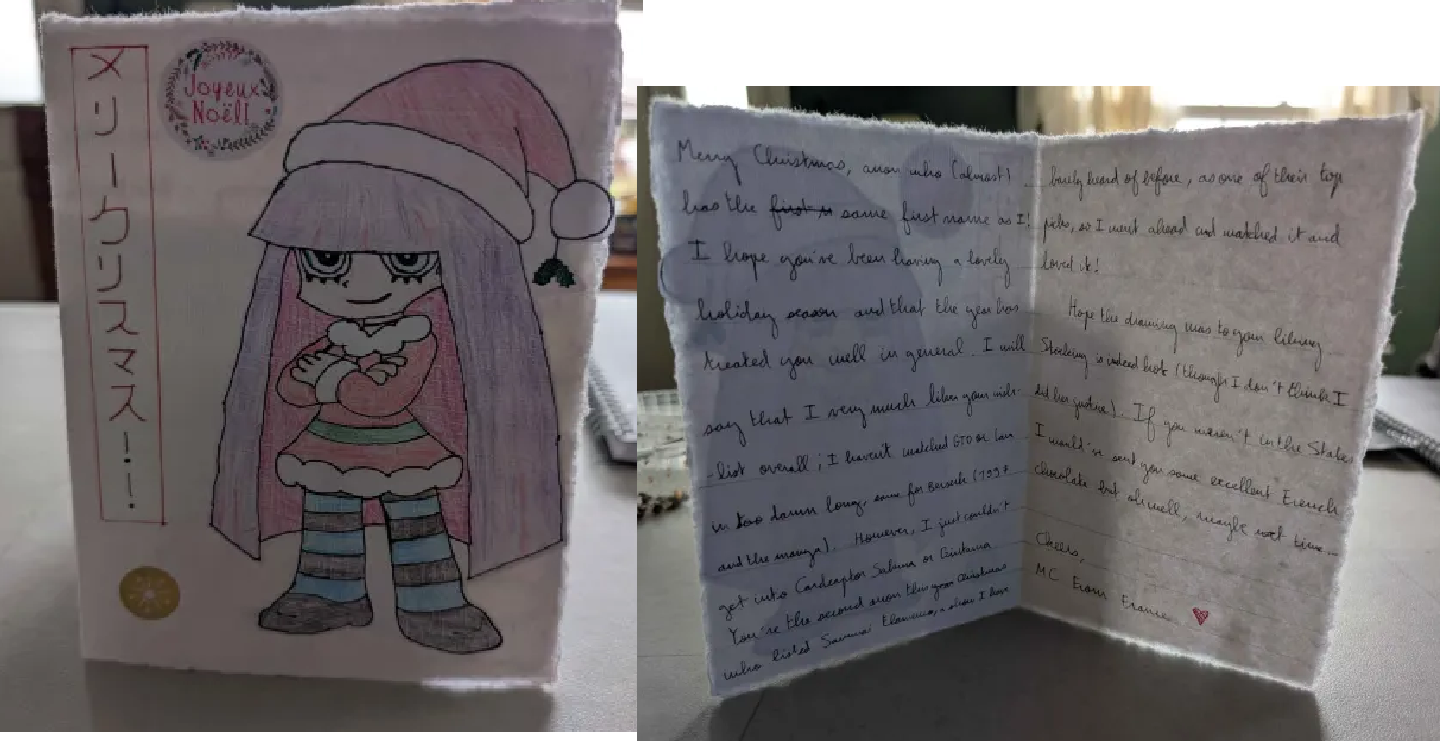 メリークリスマス!!
Joyeux
Noël!
Merry Christmas, anon who (almost)
has the first n same first name as I!
I hope you've been having a lovely
holiday season and that the year has
treated you well in general. I will
say that I very much like your wish-
-list overall; I haven't watched GTO or
in too damn long, same for Berserk (1997
and the manga). However, I just couldn't
get into Cardcaptor Sakura or Gintama
You're the second anon this year Christmas
who listed a show I have
barely heard of before, as one of their top
picks, so I went ahead and watched it and
loved it!
Hope the drawing was to your liking
Stocking is indeed best (though I don't think I
did her justice). If you weren't in the States
I would've sent you some excellent French
chocolate but oh well, maybe next time...
Cheers,
MC From France